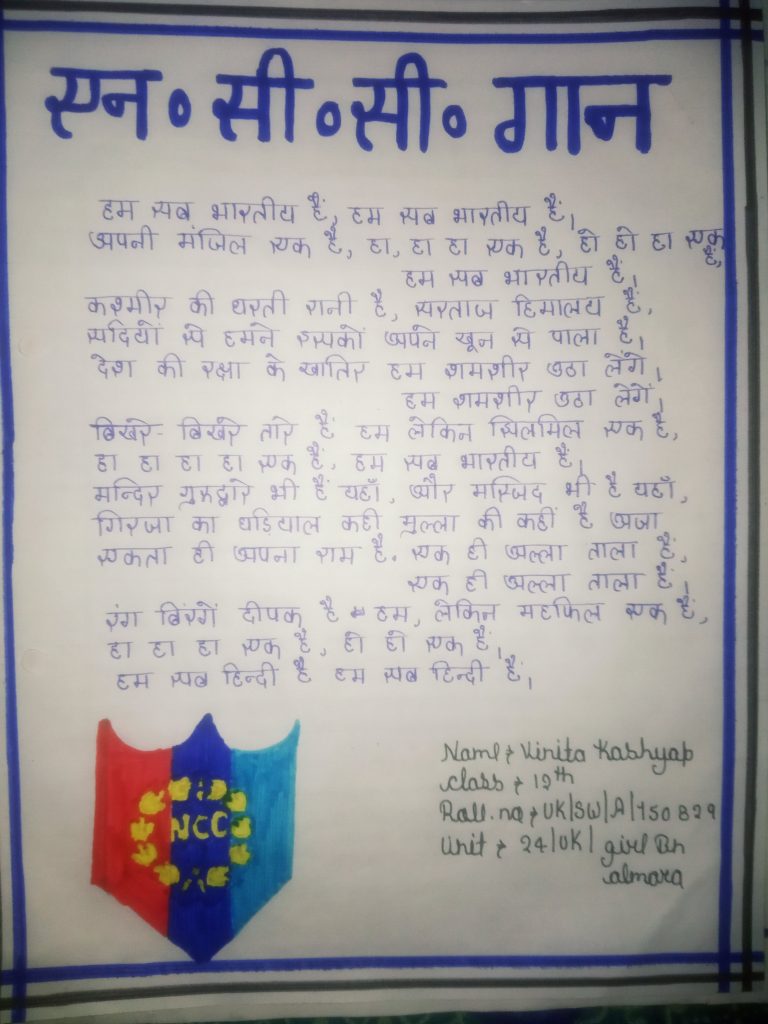 एन॰ सी॰ सी॰ गान
हम सब भारतीय हैं, हम सब भारतीय हैं,
अपनी मंजिल एक है, हा, हा हा एक है, हो हो हा एक है,
हम सब भारतीय हैं,
कश्मीर की धरती रानी है, सरताज हिमालय हैं,
सदियों से हमने इसको अपने खून से पाला है,
देश की रक्षा के खातिर हम शमशीर उठा लेंगे,
हम शमशीर उठा लेंगें,
बिखरे- बिखरे तारे हैं हम लेकिन झिलमिल एक है,
हा हा हा हा एक हैं, हम सब भारतीय हैं,
मन्दिर गुरुद्वारे भी हैं यहाँ, और मस्जिद भी है यहाँ,
गिरजा का घड़ियाल कही मुल्ला की कहीं है अजा
एकता ही अपना राम है. एक ही अल्ला ताला हैं,
एक ही अल्ला ताला हैं,
रंग बिरंगें दीपक है हम, लेकिन महफिल एक हैं,
हा हा हा एक है, हो हो एक हैं,
हम सब हिन्दी है हम सब हिन्दी हैं,
NCC
Name Vinita Kashyap
class 12th
Roll. no UK/SW/A/
Unit 24/UK/ girl Bn
almora